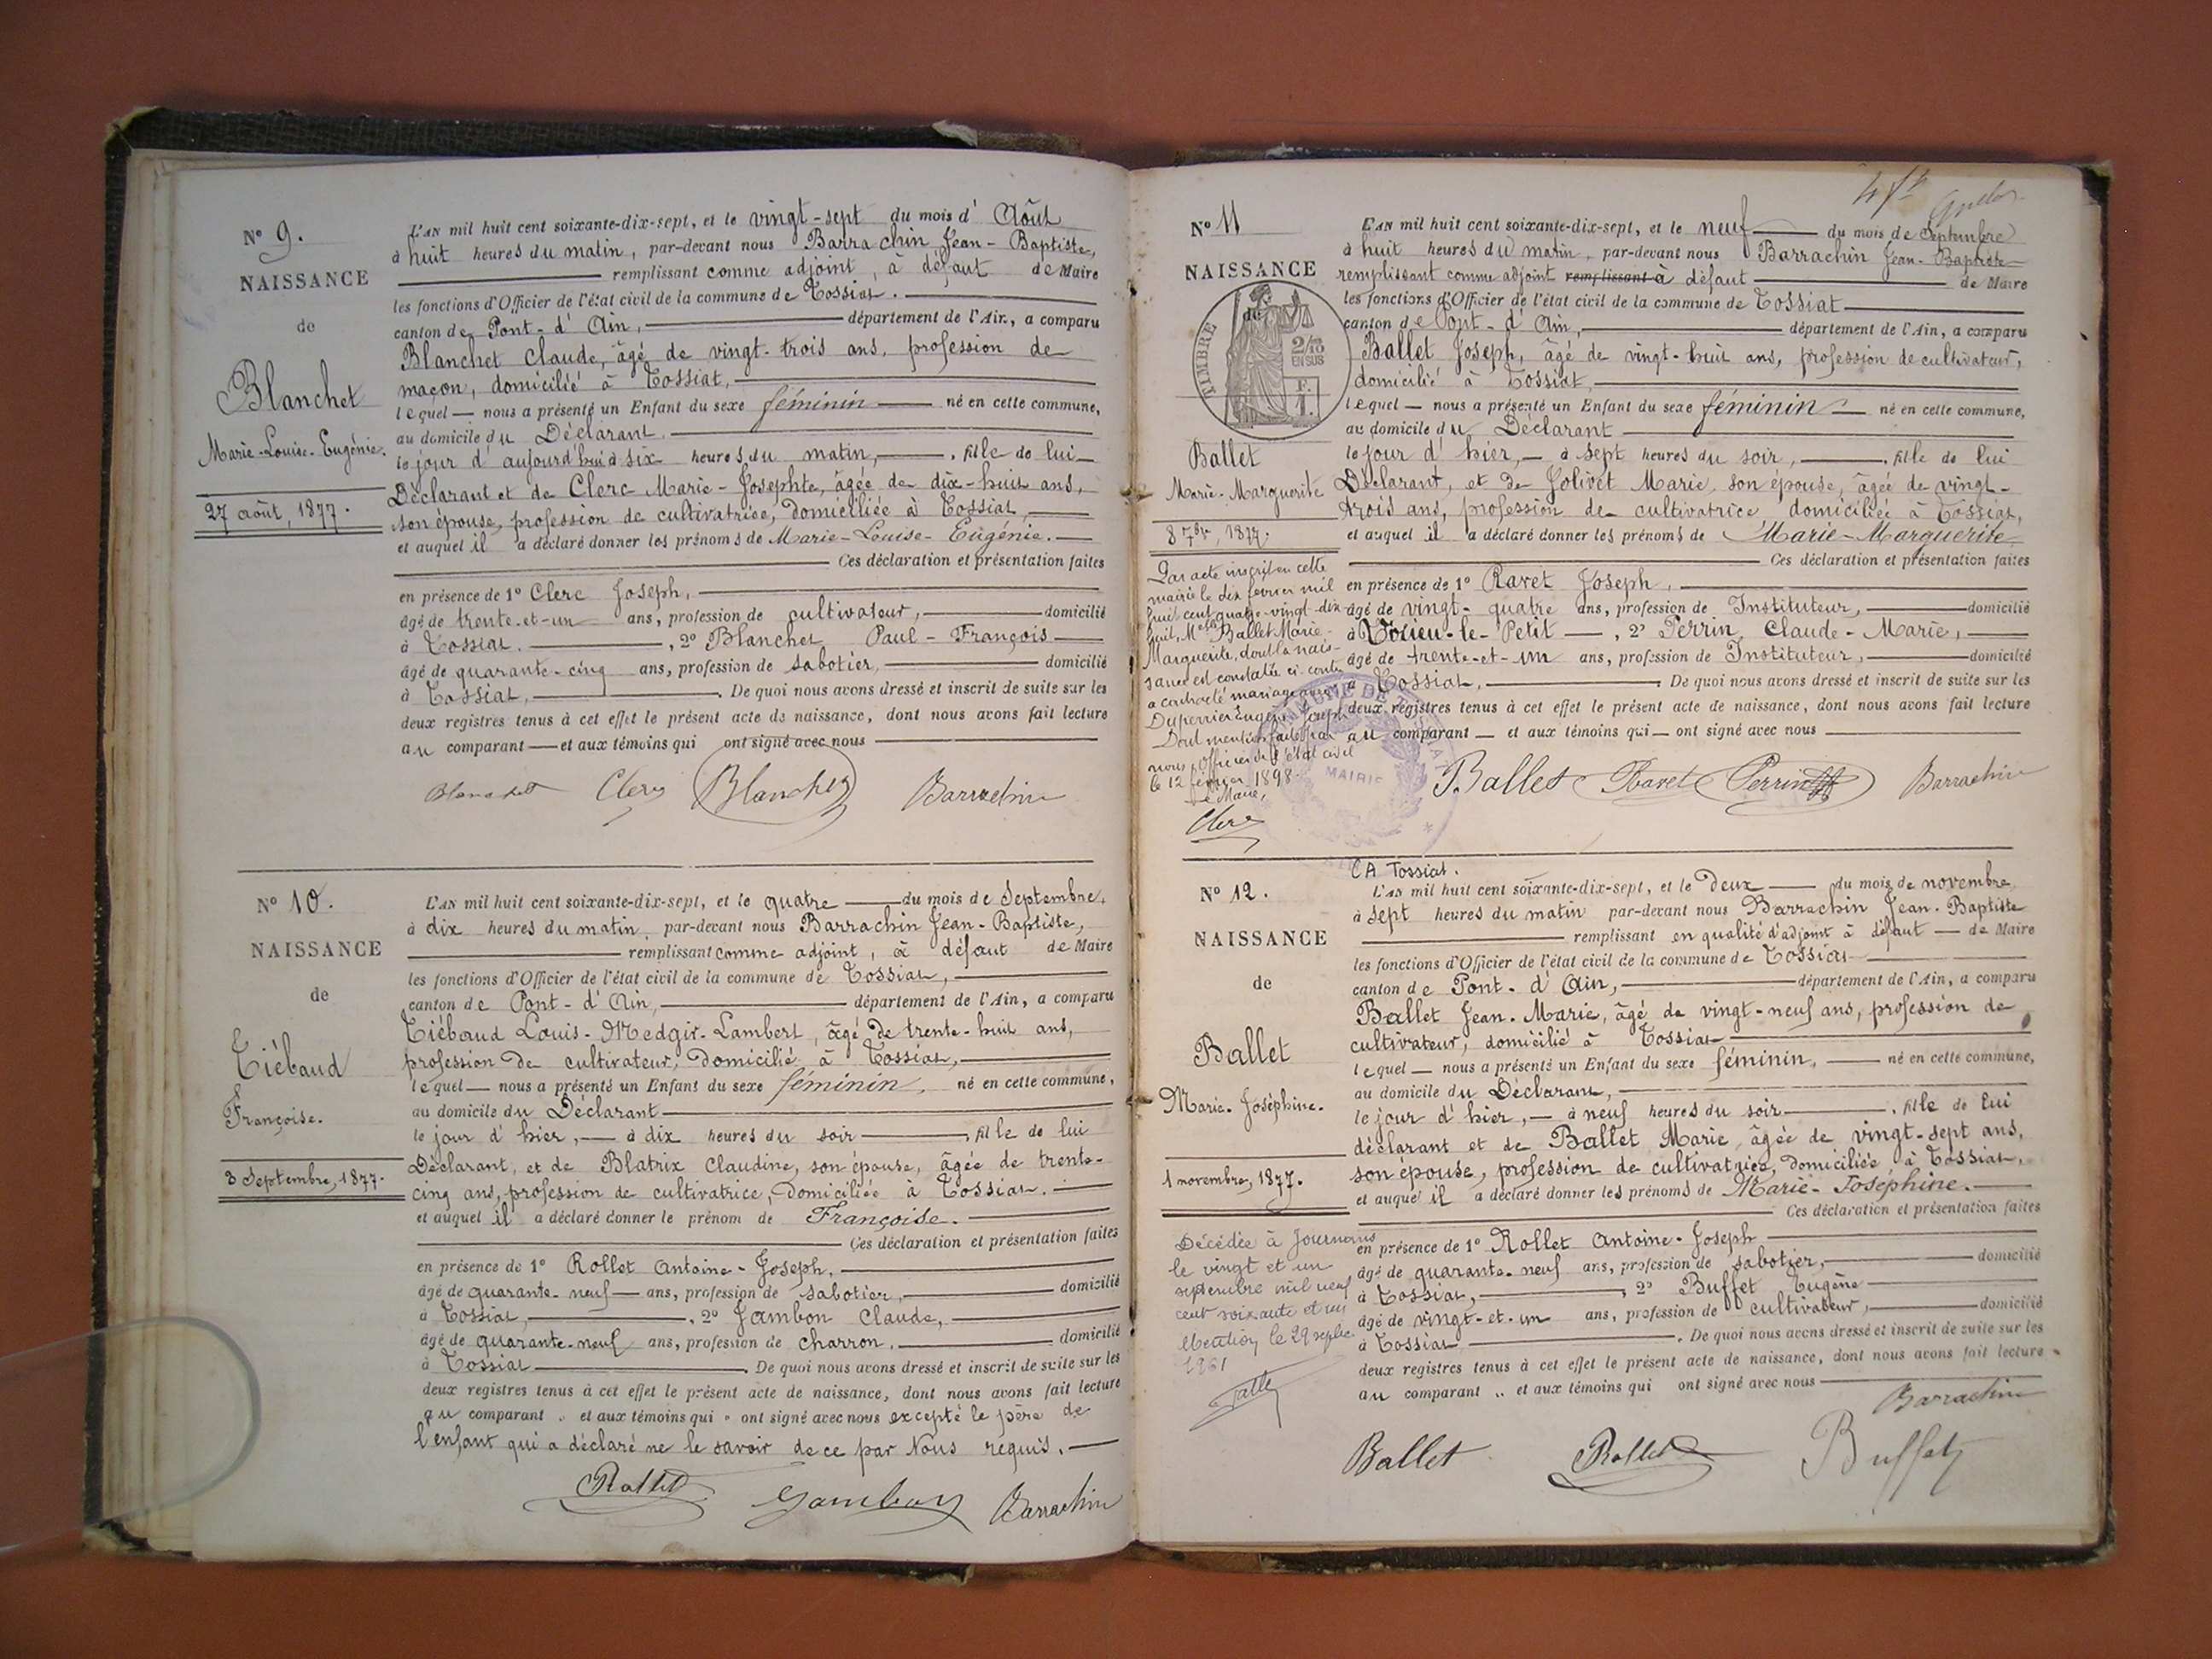 N° 9.
NAISSANCE
de
Blanchet
Marie-Louise-Eugénie.
27 août, 1877.
L'AN mil huit cent soixante-dix-sept, et le vingt-sept du mois d' Août
à huit heures du matin, par-devant nous Barrachin Jean-Baptiste,
remplissant comme adjoint, à défaut de Maire
les fonctions d'Officier de l'état civil de la commune de Tossiat.
canton de Pont-d'Ain, département de l'Ain, a comparu
Blanchet Claude, âgé de vingt-trois ans, profession de
maçon, domicilié à Tossiat,
lequel nous a présenté un Enfant du sexe féminin né en cette commune,
au domicile du Déclarant.
le jour d'aujourd'hui à six heures du matin, fille de lui
Déclarant et de Clerc Marie-Josephte, âgée de dix-huit ans,
son épouse, profession de cultivatrice, domiciliée à Tossiat,
et auquel il a déclaré donner les prénoms de Marie-Louise-Eugénie.
Ces déclaration et présentation faites
en présence de 1° Clerc Joseph,
âgé de trente-et-un ans, profession de cultivateur, domicilié
à Tossiat. , 2° Blanchet Paul-François
âgé de quarante-cinq ans, profession de sabotier, domicilié
à Tossiat, . De quoi nous avons dressé et inscrit de suite sur les
deux registres tenus à cet effet le présent acte de naissance, dont nous avons fait lecture
au comparant et aux témoins qui ont signé avec nous
Blanchet Clerc Blanchet Barrachin
N° 10.
NAISSANCE
de
Tiébaud
Françoise.
3 Septembre, 1877.
L'AN mil huit cent soixante-dix-sept, et le quatre du mois de Septembre,
à dix heures du matin, par-devant nous Barrachin Jean-Baptiste,
remplissant comme adjoint, à défaut de Maire
les fonctions d'Officier de l'état civil de la commune de Tossiat,
canton de Pont-d'Ain, département de l'Ain, a comparu
Tiébaud Louis-Medgir-Lambert, âgé de trente-huit ans,
profession de cultivateur, domicilié à Tossiat,
lequel nous a présenté un Enfant du sexe féminin, né en cette commune,
au domicile du Déclarant
le jour d'hier, à dix heures du soir , fille de lui
Déclarant, et de Blatrix Claudine, son épouse, âgée de trente-
cinq ans, profession de cultivatrice, domiciliée à Tossiat.
et auquel il a déclaré donner le prénom de Françoise.
Ces déclaration et présentation faites
en présence de 1° Rollet Antoine-Joseph,
âgé de quarante-neuf ans, profession de sabotier, domicilié
à Tossiat, , 2° Jambon Claude,
âgé de quarante-neuf ans, profession de charron, domicilié
à Tossiat . De quoi nous avons dressé et inscrit de suite sur les
deux registres tenus à cet effet le présent acte de naissance, dont nous avons fait lecture
au comparant et aux témoins qui ont signé avec nous excepté le père de
l'enfant qui a déclaré ne le savoir de ce par Nous requis.
Rollet Jambon Barrachin
N° 11
NAISSANCE
de
TIMBRE
2/10
EN SUS
F.
1.
Ballet
Marie-Marguerite
8 7bre 1877.
Par acte inscrit en cette
mairie le dix février mil
huit cent quatre-vingt-dix
huit, Mlle Ballet Marie-
Marguerite, dont la nais-
sance est constatée ci-contre
a contracté mariage avec
Duperrier Eugène Joseph
Dont mention faite par
nous, Officier de l'état civil
le 12 février 1898.
Le Maire,
Clerc
L'AN mil huit cent soixante-dix-sept, et le neuf du mois de Septembre
à huit heures du matin, par-devant nous Barrachin Jean-Baptiste
remplissant comme adjoint remplissant à défaut de Maire
les fonctions d'Officier de l'état civil de la commune de Tossiat
canton de Pont-d'Ain, département de l'Ain, a comparu
Ballet Joseph, âgé de vingt-huit ans, profession de cultivateur,
domicilié à Tossiat,
lequel nous a présenté un Enfant du sexe féminin né en cette commune,
au domicile du Déclarant
le jour d'hier, à sept heures du soir, , fille de lui
Déclarant, et de Jolivet Marie, son épouse, âgée de vingt-
trois ans, profession de cultivatrice domiciliée à Tossiat,
et auquel il a déclaré donner les prénoms de Marie-Marguerite
Ces déclaration et présentation faites
en présence de 1° Ravet Joseph,
âgé de vingt-quatre ans, profession de Instituteur, domicilié
à Torieu-le-Petit , 2° Perrin, Claude-Marie,
âgé de trente-et-un ans, profession de Instituteur, domicilié
à Tossiat, . De quoi nous avons dressé et inscrit de suite sur les
deux registres tenus à cet effet le présent acte de naissance, dont nous avons fait lecture
au comparant et aux témoins qui ont signé avec nous
COMMUNE DE TOSSIAT
MAIRIE
Ballet Ravet Perrin Barrachin
N° 12.
NAISSANCE
de
Ballet
Marie-Joséphine.
1 novembre, 1877.
Décédée à Journans
le vingt et un
septembre mil neuf
cent soixante et un
Mention le 29 septbre
1961
CA Tossiat.
L'AN mil huit cent soixante-dix-sept, et le deux du mois de novembre
à sept heures du matin par-devant nous Barrachin Jean-Baptiste
remplissant en qualité d'adjoint à défaut de Maire
les fonctions d'Officier de l'état civil de la commune de Tossiat
canton de Pont-d'Ain, département de l'Ain, a comparu
Ballet Jean-Marie, âgé de vingt-neuf ans, profession de
cultivateur, domicilié à Tossiat
lequel nous a présenté un Enfant du sexe féminin, né en cette commune,
au domicile du Déclarant,
le jour d'hier, à neuf heures du soir , fille de lui
déclarant et de Ballet Marie, âgée de vingt-sept ans,
son épouse, profession de cultivatrice, domiciliée à Tossiat,
et auquel il a déclaré donner les prénoms de Marie-Joséphine.
Ces déclaration et présentation faites
en présence de 1° Rollet Antoine-Joseph
âgé de quarante-neuf ans, profession de sabotier, domicilié
à Tossiat, , 2° Buffet Eugène
âgé de vingt-et-un ans, profession de cultivateur, domicilié
à Tossiat . De quoi nous avons dressé et inscrit de suite sur les
deux registres tenus à cet effet le présent acte de naissance, dont nous avons fait lecture
au comparant et aux témoins qui ont signé avec nous
Barrachin
Ballet Rollet Buffet